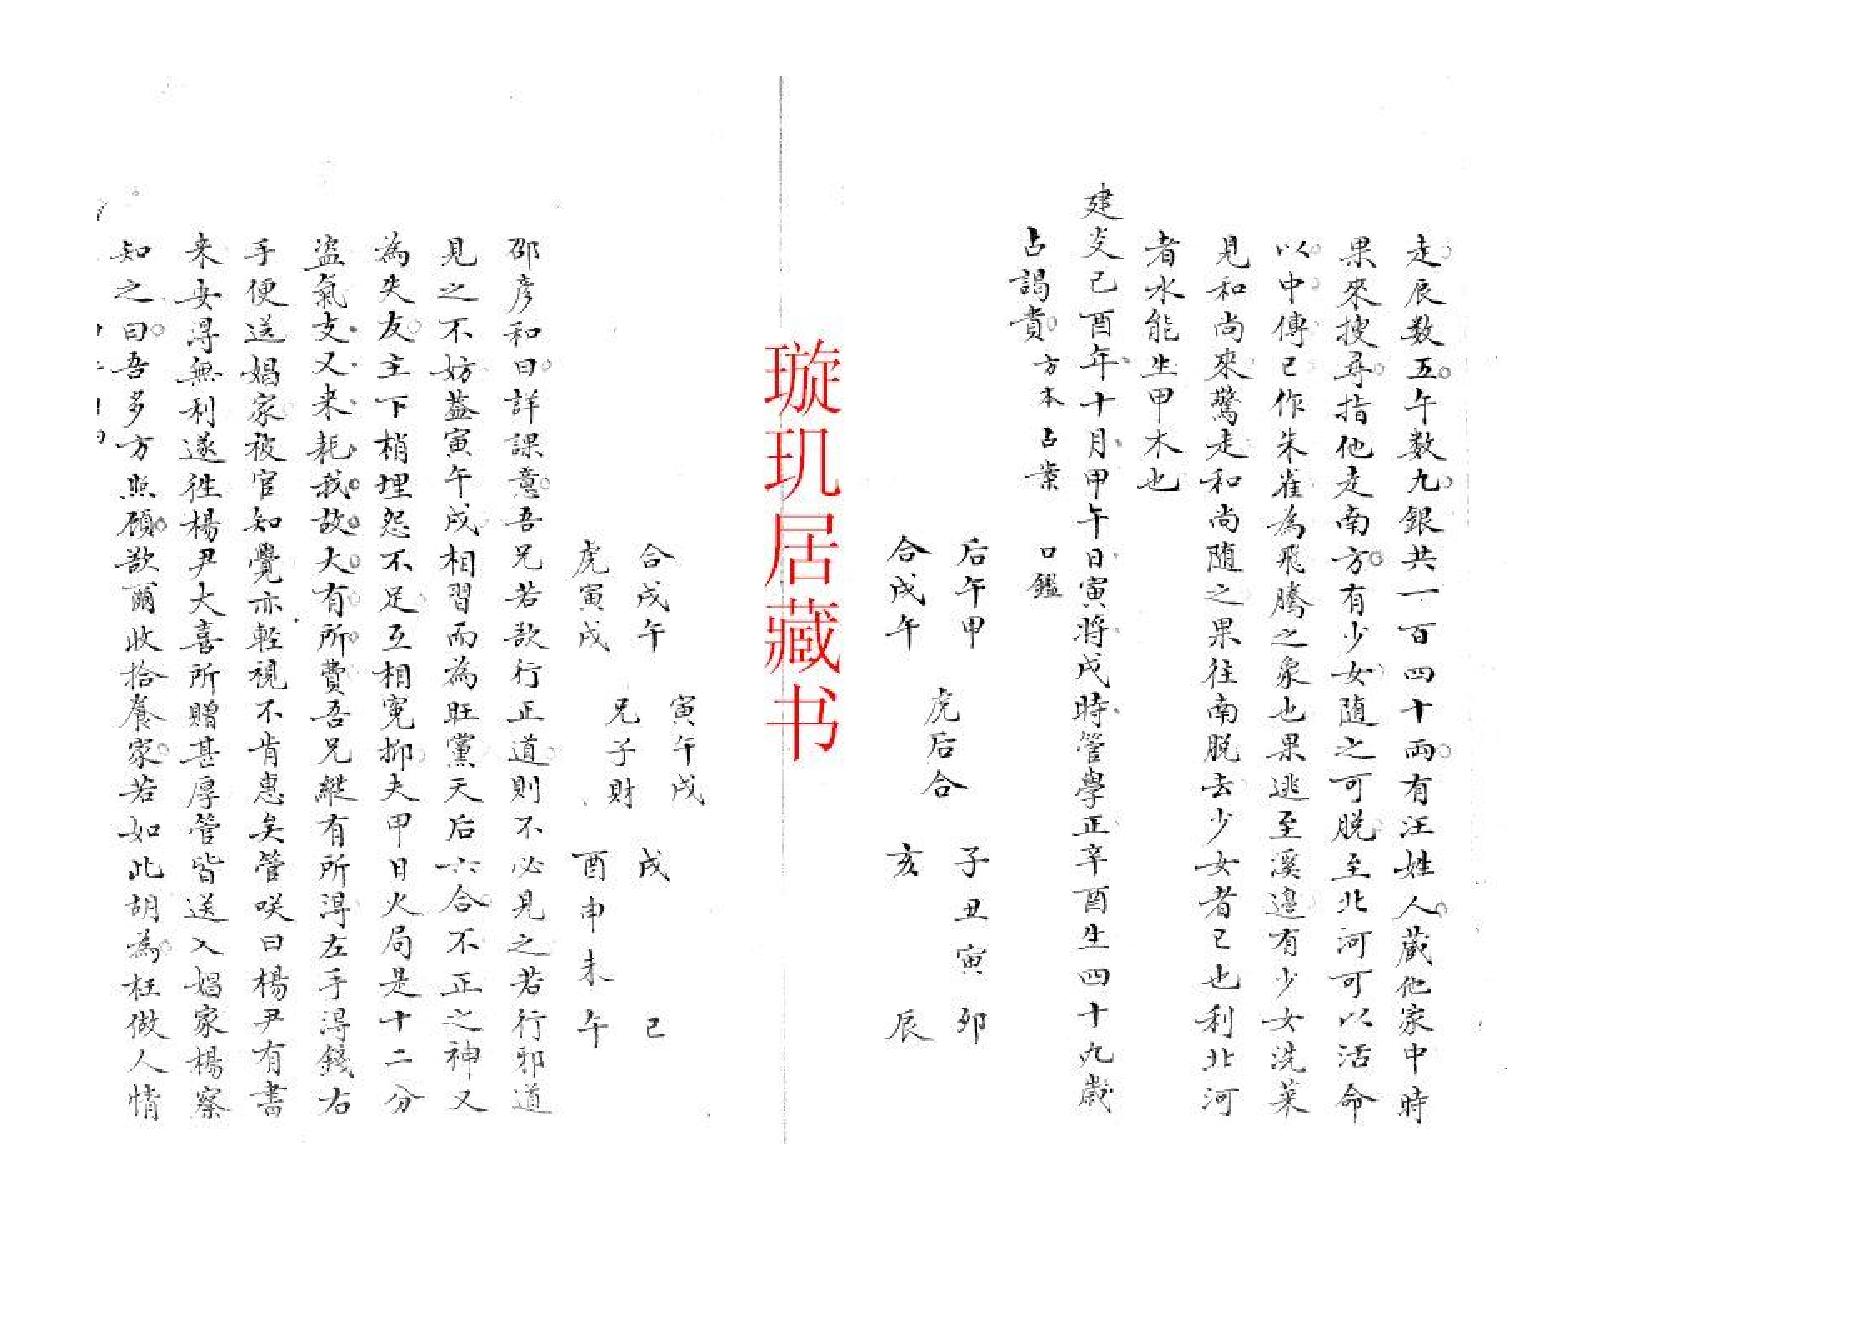 走辰数五午数九銀共一百四十両有汪姓人藏他家中時
果來搜尋指他走南方有少女随之可脱至北河可以活命
以中傳巳作朱雀為飛騰之象也果逃至溪邉有少女洗菜
見和尚來驚走和尚随之果往南脱去少女者巳也利北河
者水能生甲木也
建炎己酉年十月甲午日寅將戌時管學正辛酉生四十九歳
占謁貴 方本占業 口鑑
后午甲 子丑寅卯
虎后合
合戌午 亥 辰
璇玑居藏书
寅午戌
合戌午 戌 巳
兄子財
虎寅戌 酉申未午
邵彦和曰詳課意吾兄若欲行正道則不必見之若行邪道
見之不妨蓋寅午戌相習而為旺黨天后六合不正之神又
為失友主下梢埋怨不足互相寃抑夫甲日火局是十二分
盗氣支又来耗我故大有所費吾兄縦有所淂左手淂錢右
手便送娼家被官知覺亦輕視不肯惠矣管咲曰楊尹有書
来安淂無利遂徃楊尹大喜所贈甚厚管皆送入娼家楊察
知之曰吾多方照顧欲爾收拾養家若如此胡為枉做人情